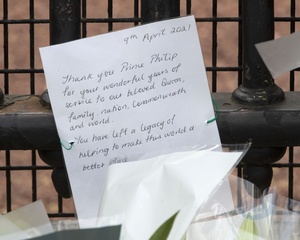 9th April 2021
Thank you Prince Philip
for your wonderful years of
service to our beloved Queen,
family, nation, Commonwealth
and world.
You have left a legacy of
helping to make this world a
better place